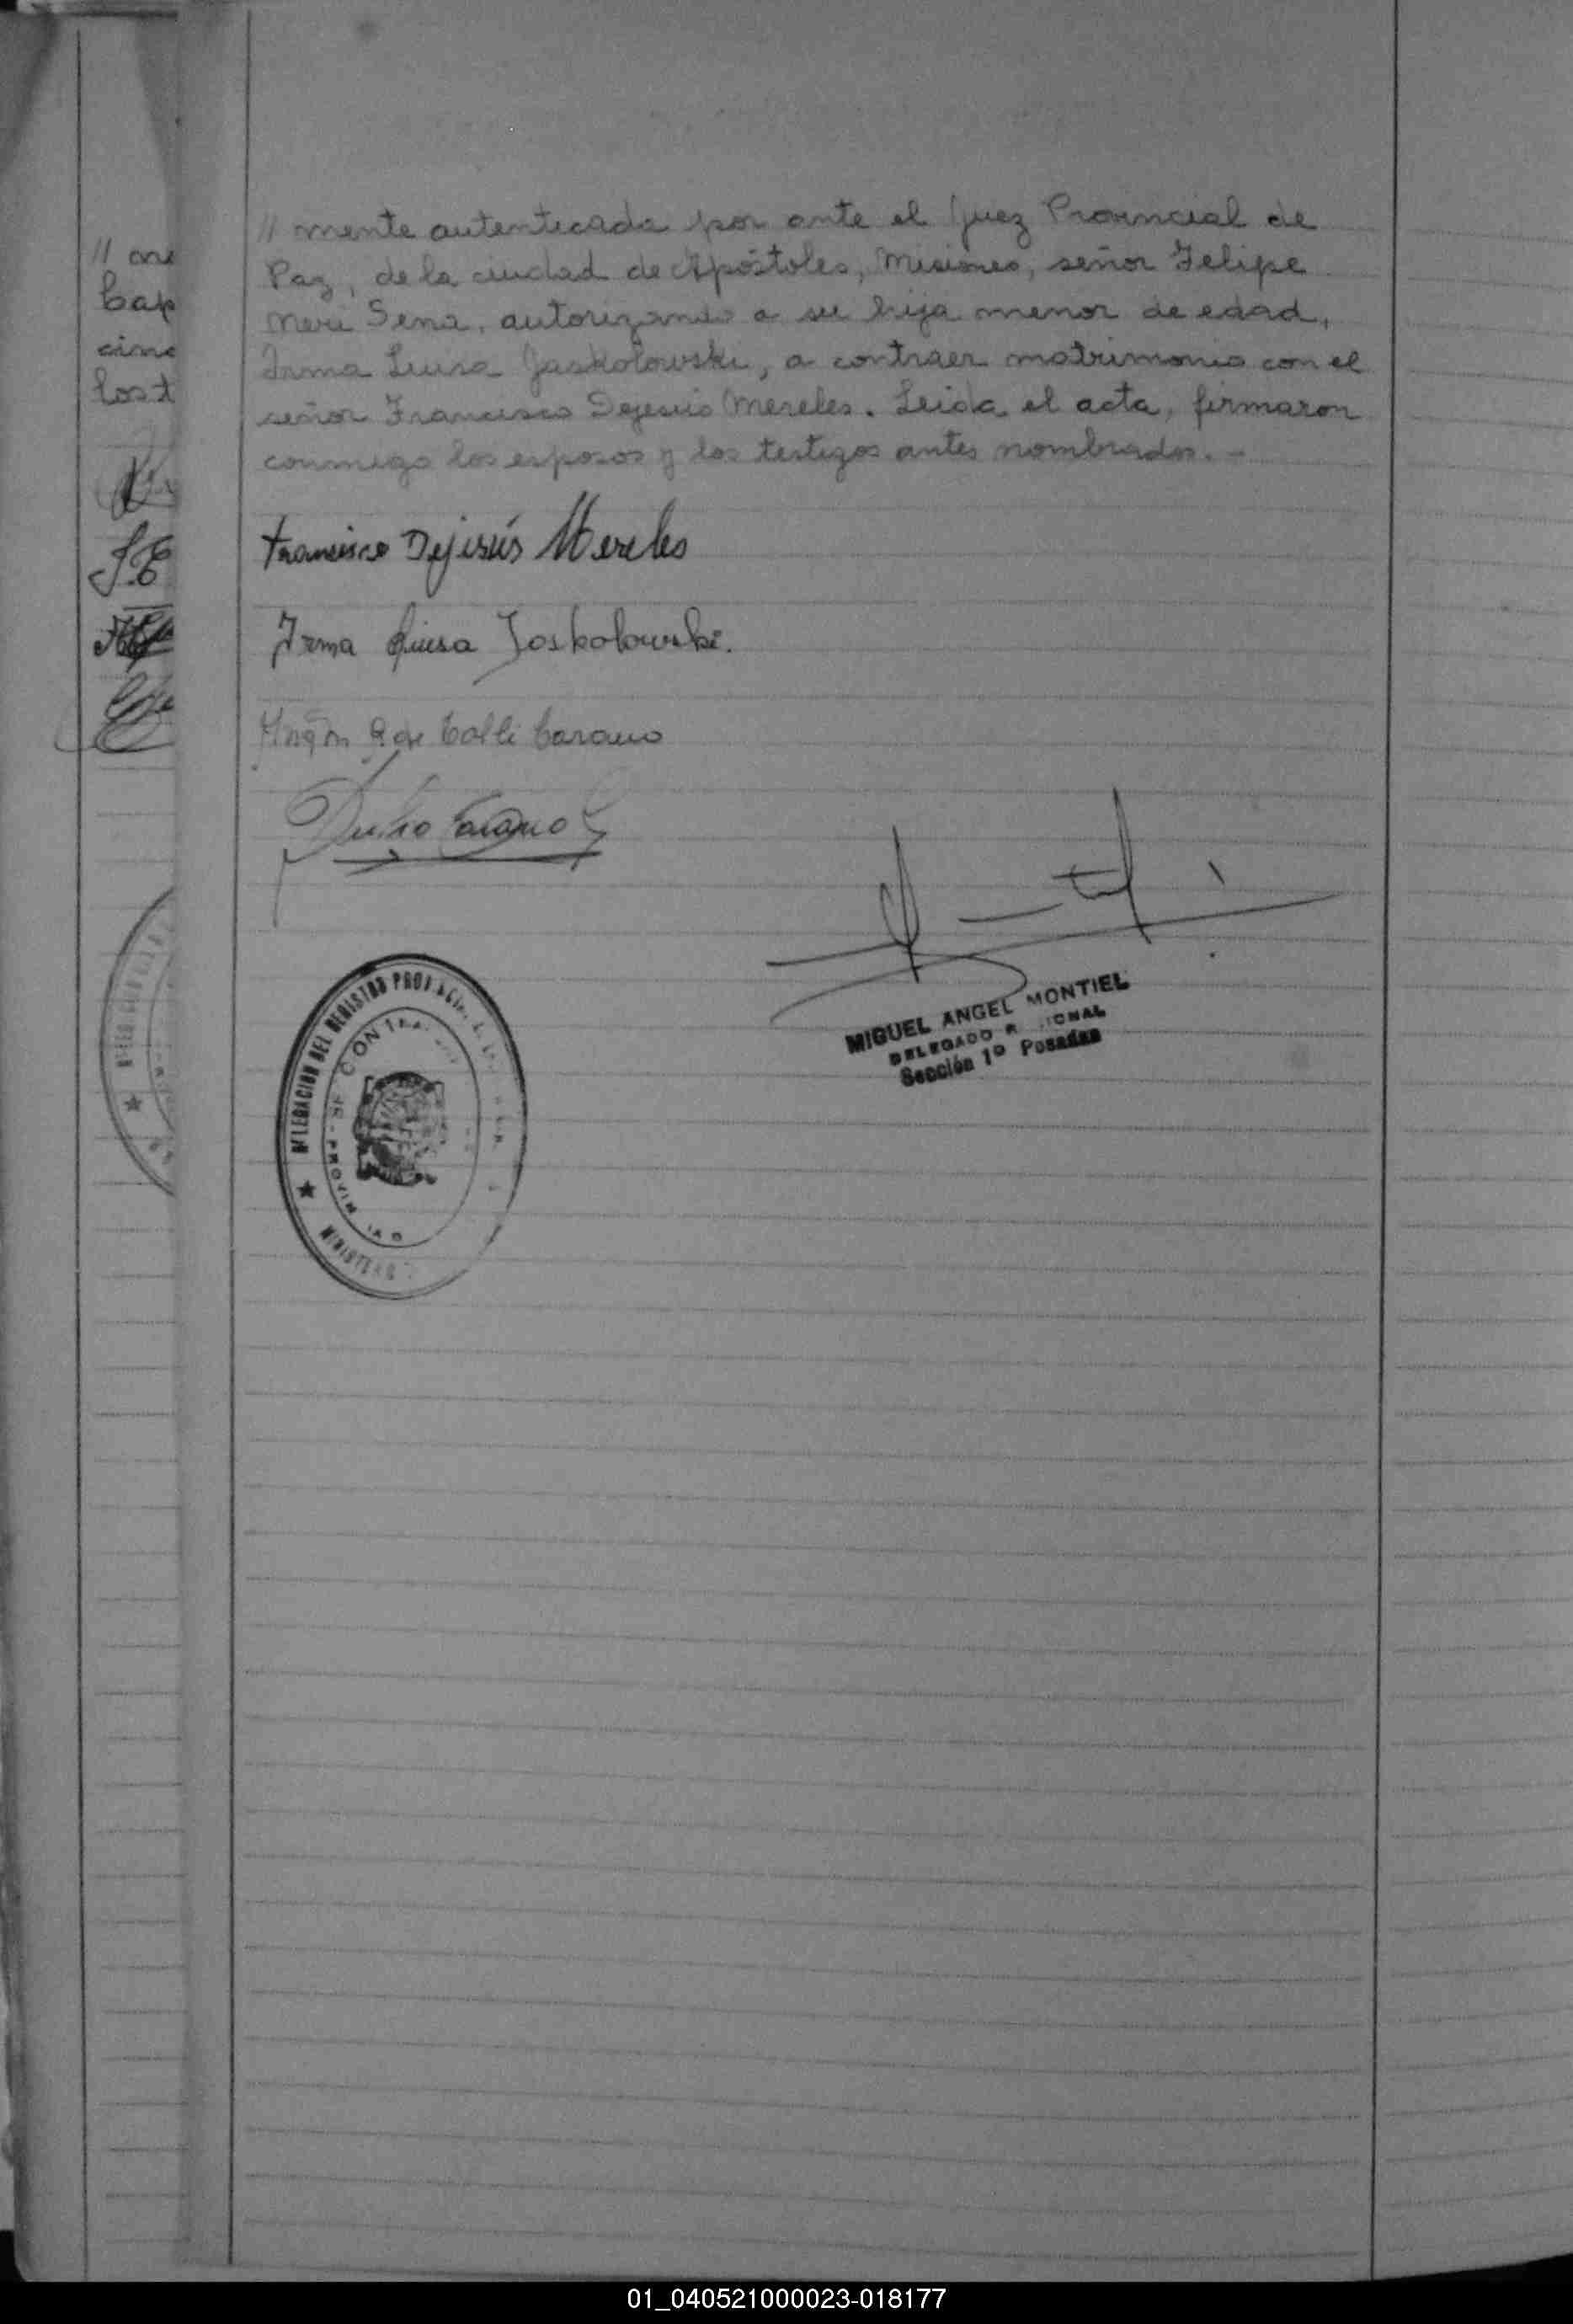 // mente autenticada por ante el Juez Provincial de
Paz, de la ciudad de Apóstoles, Misiones, señor Felipe
Neri Sena, autorizando a su hija menor de edad,
Irma Luisa Jaskolowski, a contraer matrimonio con el
señor Francisco Dejesús Mereles. Leida el acta, firmaron
conmigo los esposos y los testigos antes nombrados. -
Francisco Dejesús Mereles
Irma Luisa Joskolowski.
de Colli Carano
Carano
MIGUEL ANGEL MONTIEL
DELEGADO
Sección 1º Posadas
DELEGACION DEL REGISTRO
MINISTERIO
// me
bap
cinc
los t
01_040521000023-018177